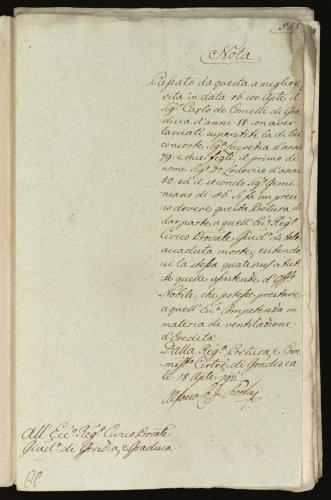 Nota
Passato da questa a miglior
vita in data 16 cor Aple il
Sigr Carlo de Comelli di Gra
disca d'anni 88 con aver
lasciati superstiti la di lui
consorte Sigra Lucrezia d'anni
79. e due figli, il primo di
nome Sigr Dr Lodovico d'anni
50. ed il secondo Sigr Gemi
niano di 46. Si fa un preci
so dovere questa Pretura di
dar parte, a quell' Ecco Rego
Civico Provale Giudo di tale
accaduta morte, esibendo
si la stessa
quelle d'Offo
Nobile, che potesse prestare
a quell' Ecca Competenza in
materia di ventilazione
d'Eredità.
Dalla Rega Pretura e Com
di Gradisca
li 18 Aple 792
All' Ecco Rego Civico Provale
Giudo di Gorizia, e Gradisca